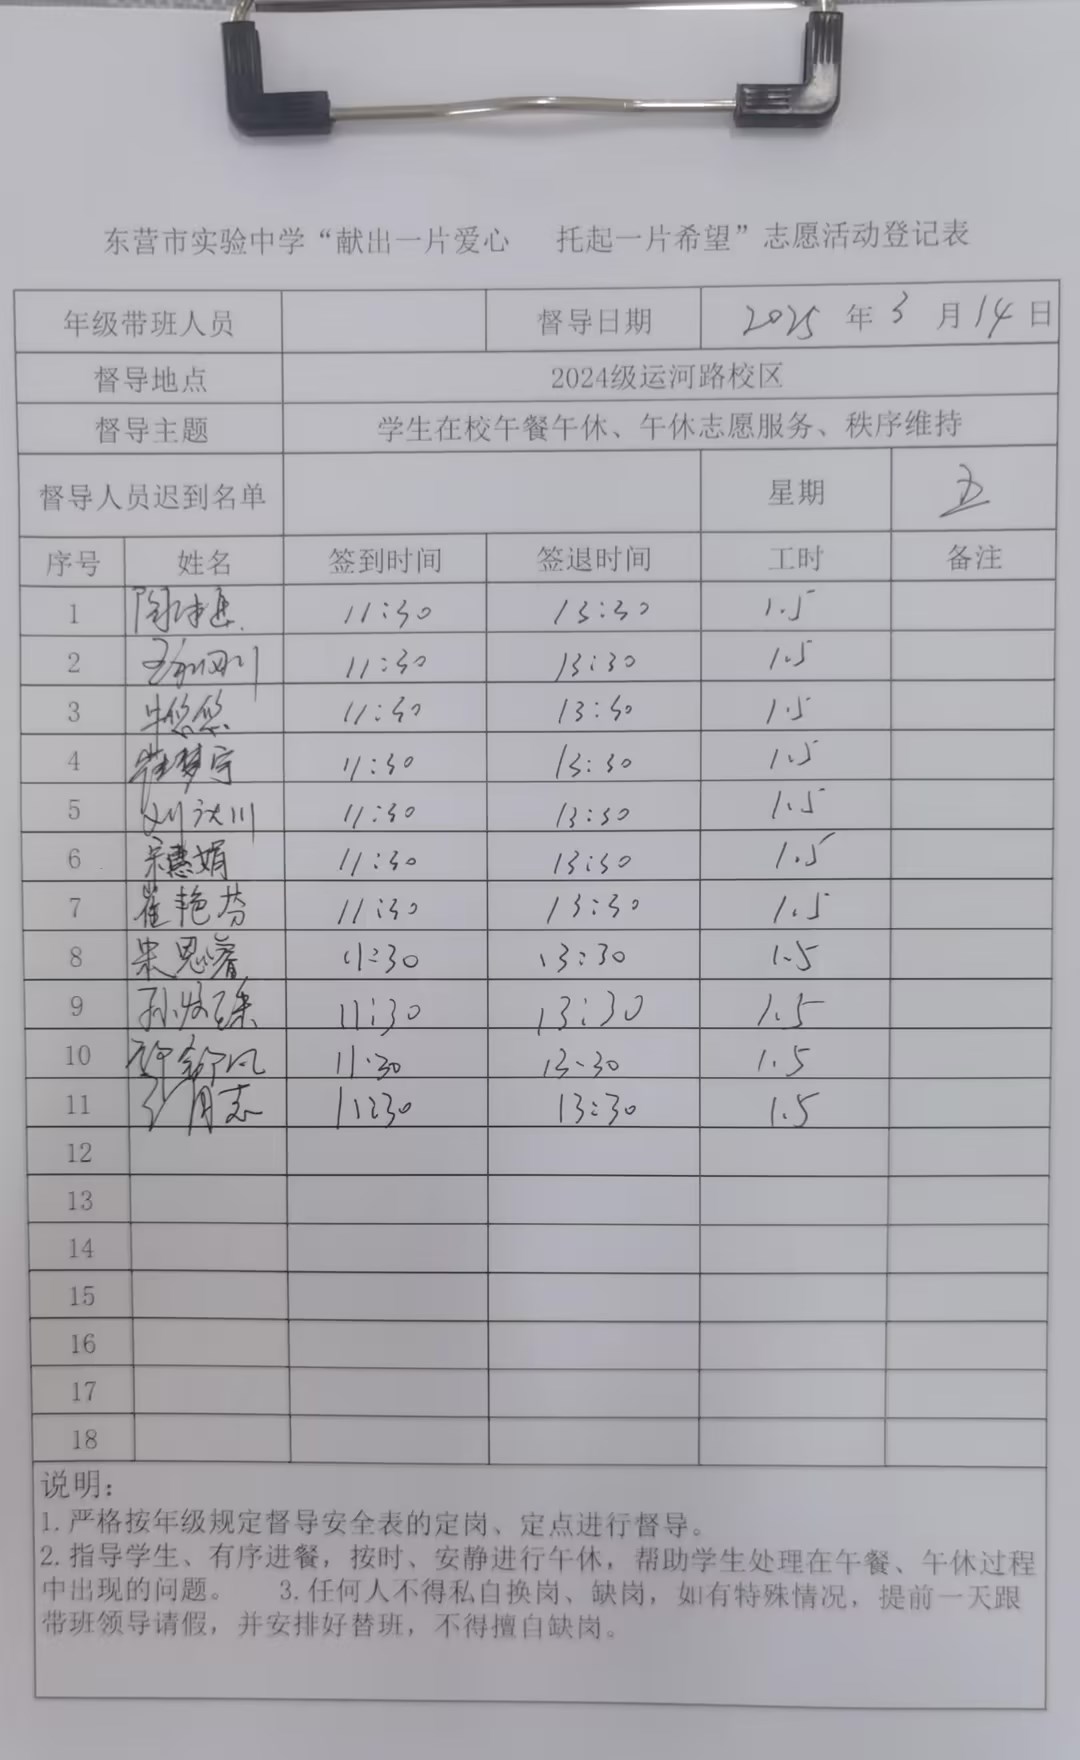 东营市实验中学“献出一片爱心 托起一片希望”志愿活动登记表
年级带班人员 督导日期 2025年3月14日
督导地点 2024级运河路校区
督导主题 学生在校午餐午休、午休志愿服务、秩序维持
督导人员迟到名单 星期 五
序号 姓名 签到时间 签退时间 工时 备注
1 11:30 13:30 1.5
2 11:30 13:30 1.5
3 牛悠悠 11:30 13:30 1.5
4 崔梦宇 11:30 13:30 1.5
5 11:30 13:30 1.5
6 宋惠娟 11:30 13:30 1.5
7 崔艳芬 11:30 13:30 1.5
8 宋恩睿 11:30 13:30 1.5
9 11:30 13:30 1.5
10 11:30 13:30 1.5
11 11:30 13:30 1.5
12
13
14
15
16
17
18
说明：
1.严格按年级规定督导安全表的定岗、定点进行督导。
2.指导学生、有序进餐，按时、安静进行午休，帮助学生处理在午餐、午休过程
中出现的问题。 3.任何人不得私自换岗、缺岗，如有特殊情况，提前一天跟
带班领导请假，并安排好替班，不得擅自缺岗。